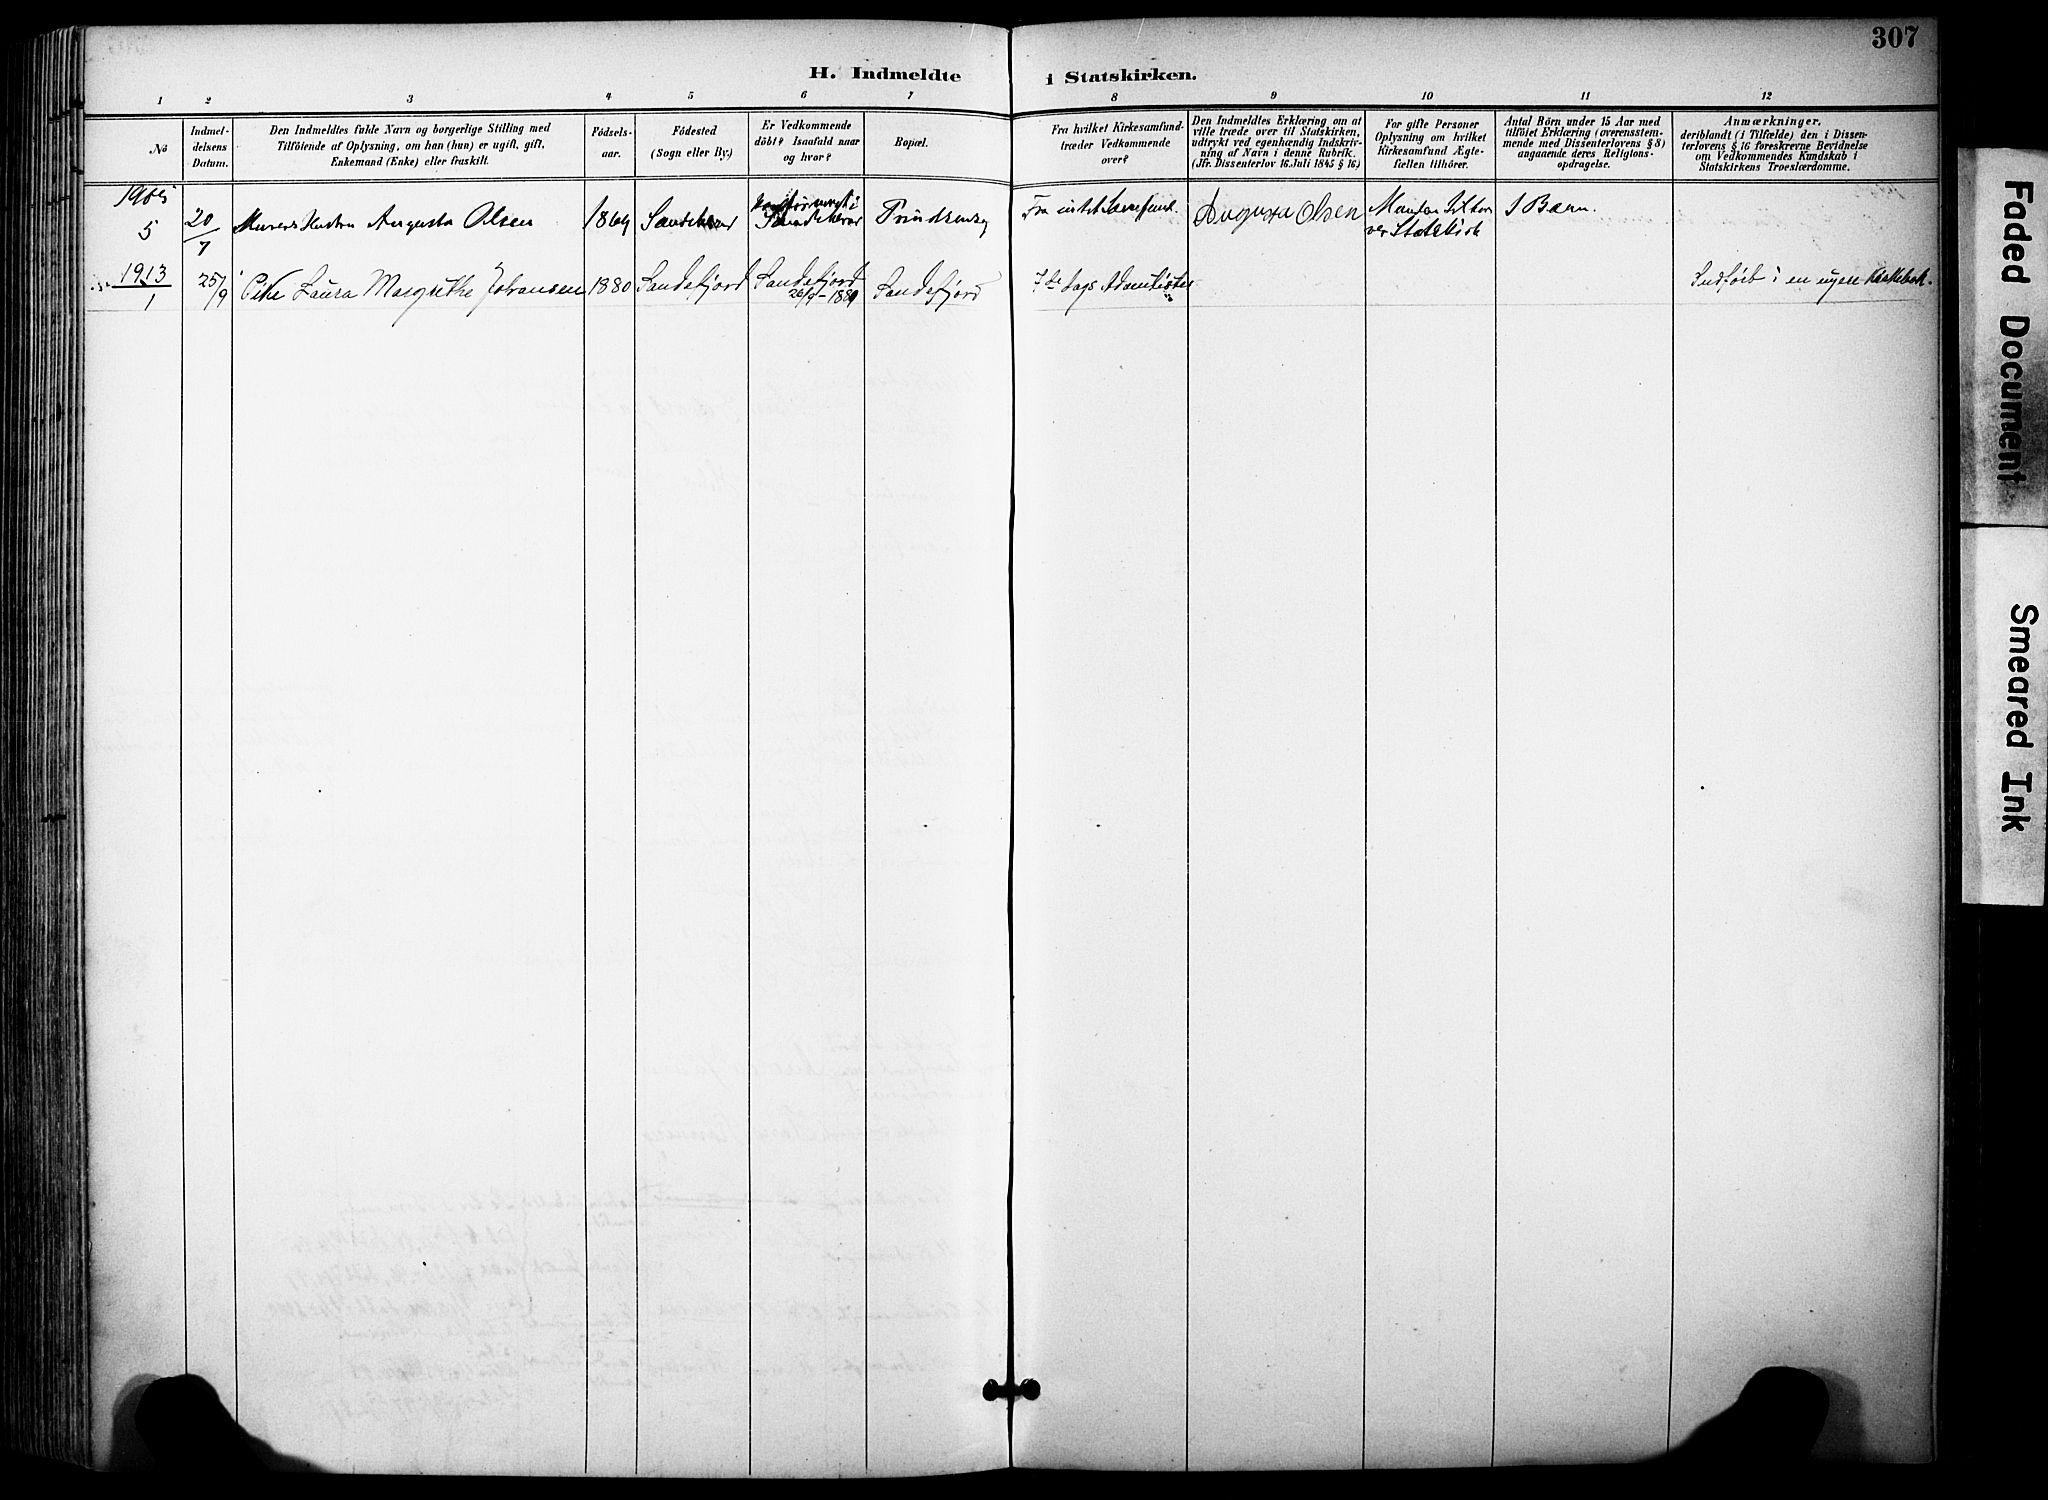 307
H. Indmeldte i Statskirken.
1 2 3 4 5 6 7 8 9 10 11 12
No
Indmel-
delsens
Datum.
Den Indmeldtes fulde Navn og borgerlige Stilling med
Tilföiende af Oplysning, om han (hun) er ugift, gift,
Enkemand (Enke) eller fraskilt.
Födsels-
aar.
Födested
(Sogn eller By.)
Er Vedkommende
döbt? Isaafald naar
og hvor?
Bopæl.
Fra hvilket Kirkesamfund
træder Vedkommende
over?
Den Indmeldtes Erklæring om at
ville træde over til Statskirken,
udtrykt ved egenhændig Indskriv-
ning af Navn i denne Rubrik.
(Jfr. Dissenterlov 16. Juli 1845 § 16.)
For gifte Personer
Oplysning om hvilket
Kirkesamfund Ægte-
fællen tilhörer.
Antal Börn under 15 Aar med
tilföiet Erklæring (overensstem-
mende med Dissenterlovens § 8)
angaaende deres Religions-
opdragelse.
Anmærkninger,
deriblandt (i Tilfælde) den i Dissen-
terlovens § 16 foreskrevne Bevidnelse
om Vedkommendes Kundskab i
Statskirkens Troeslærdomme.
1905
5
20/7
Murers Hustru Augusta Olsen
1864
Sandeherad
Sandeherad
Prindsensg
Fra intet Samfund.
Augusta Olsen
Manden
Statskirk
5 Børn.
1913
1
25/9
Pike Laura Margrethe Johansen
1880
Sandefjord
Sandefjord
Sandefjord
7de Dags Adventister
Indført i en nyere Kirkebok.
Faded Document
Smeared Ink